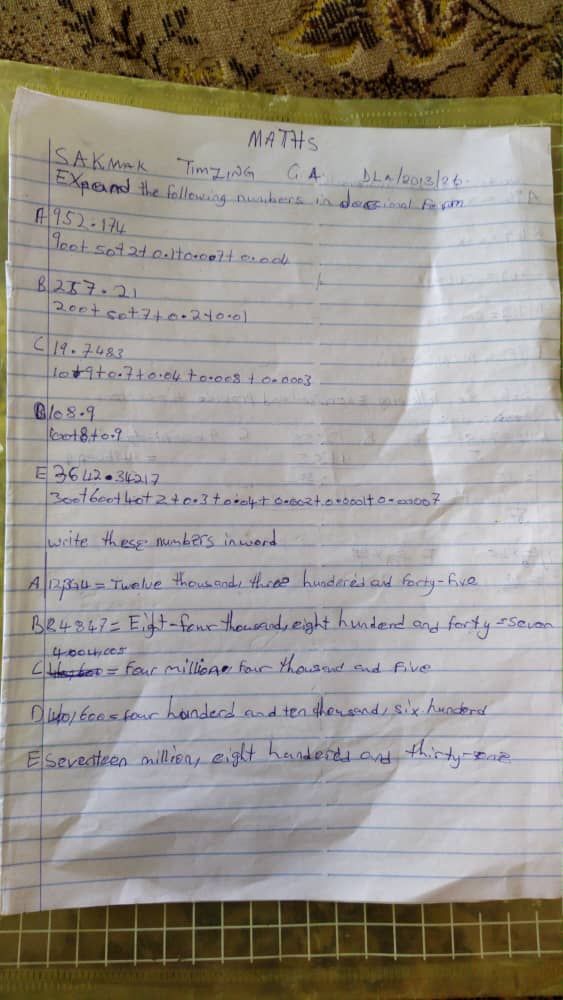 MATHS
SAKMAK TIMZING C.A. DLA/2013/26.
Expand the following numbers in form
A 952.174
900+50+2+0.1+0.007+0.004
B 257.21
200+50+7+0.2+0.01
C 19.7483
10+9+0.7+0.04+0.008+0.0003
D 108.9
100+8+0.9
E 3642.34217
300+600+40+2+0.3+0.04+0.002+0.0001+0.00007
write these numbers inword
A = Twelve thousand, three hundered and forty-five
B 84847= Eight-four thousand, eight hunderd and forty-seven
4004,005
C = four million four thousand and five
D = four hunderd and ten thousand, six hunderd
E seventeen million, eight hundered and thirty-one